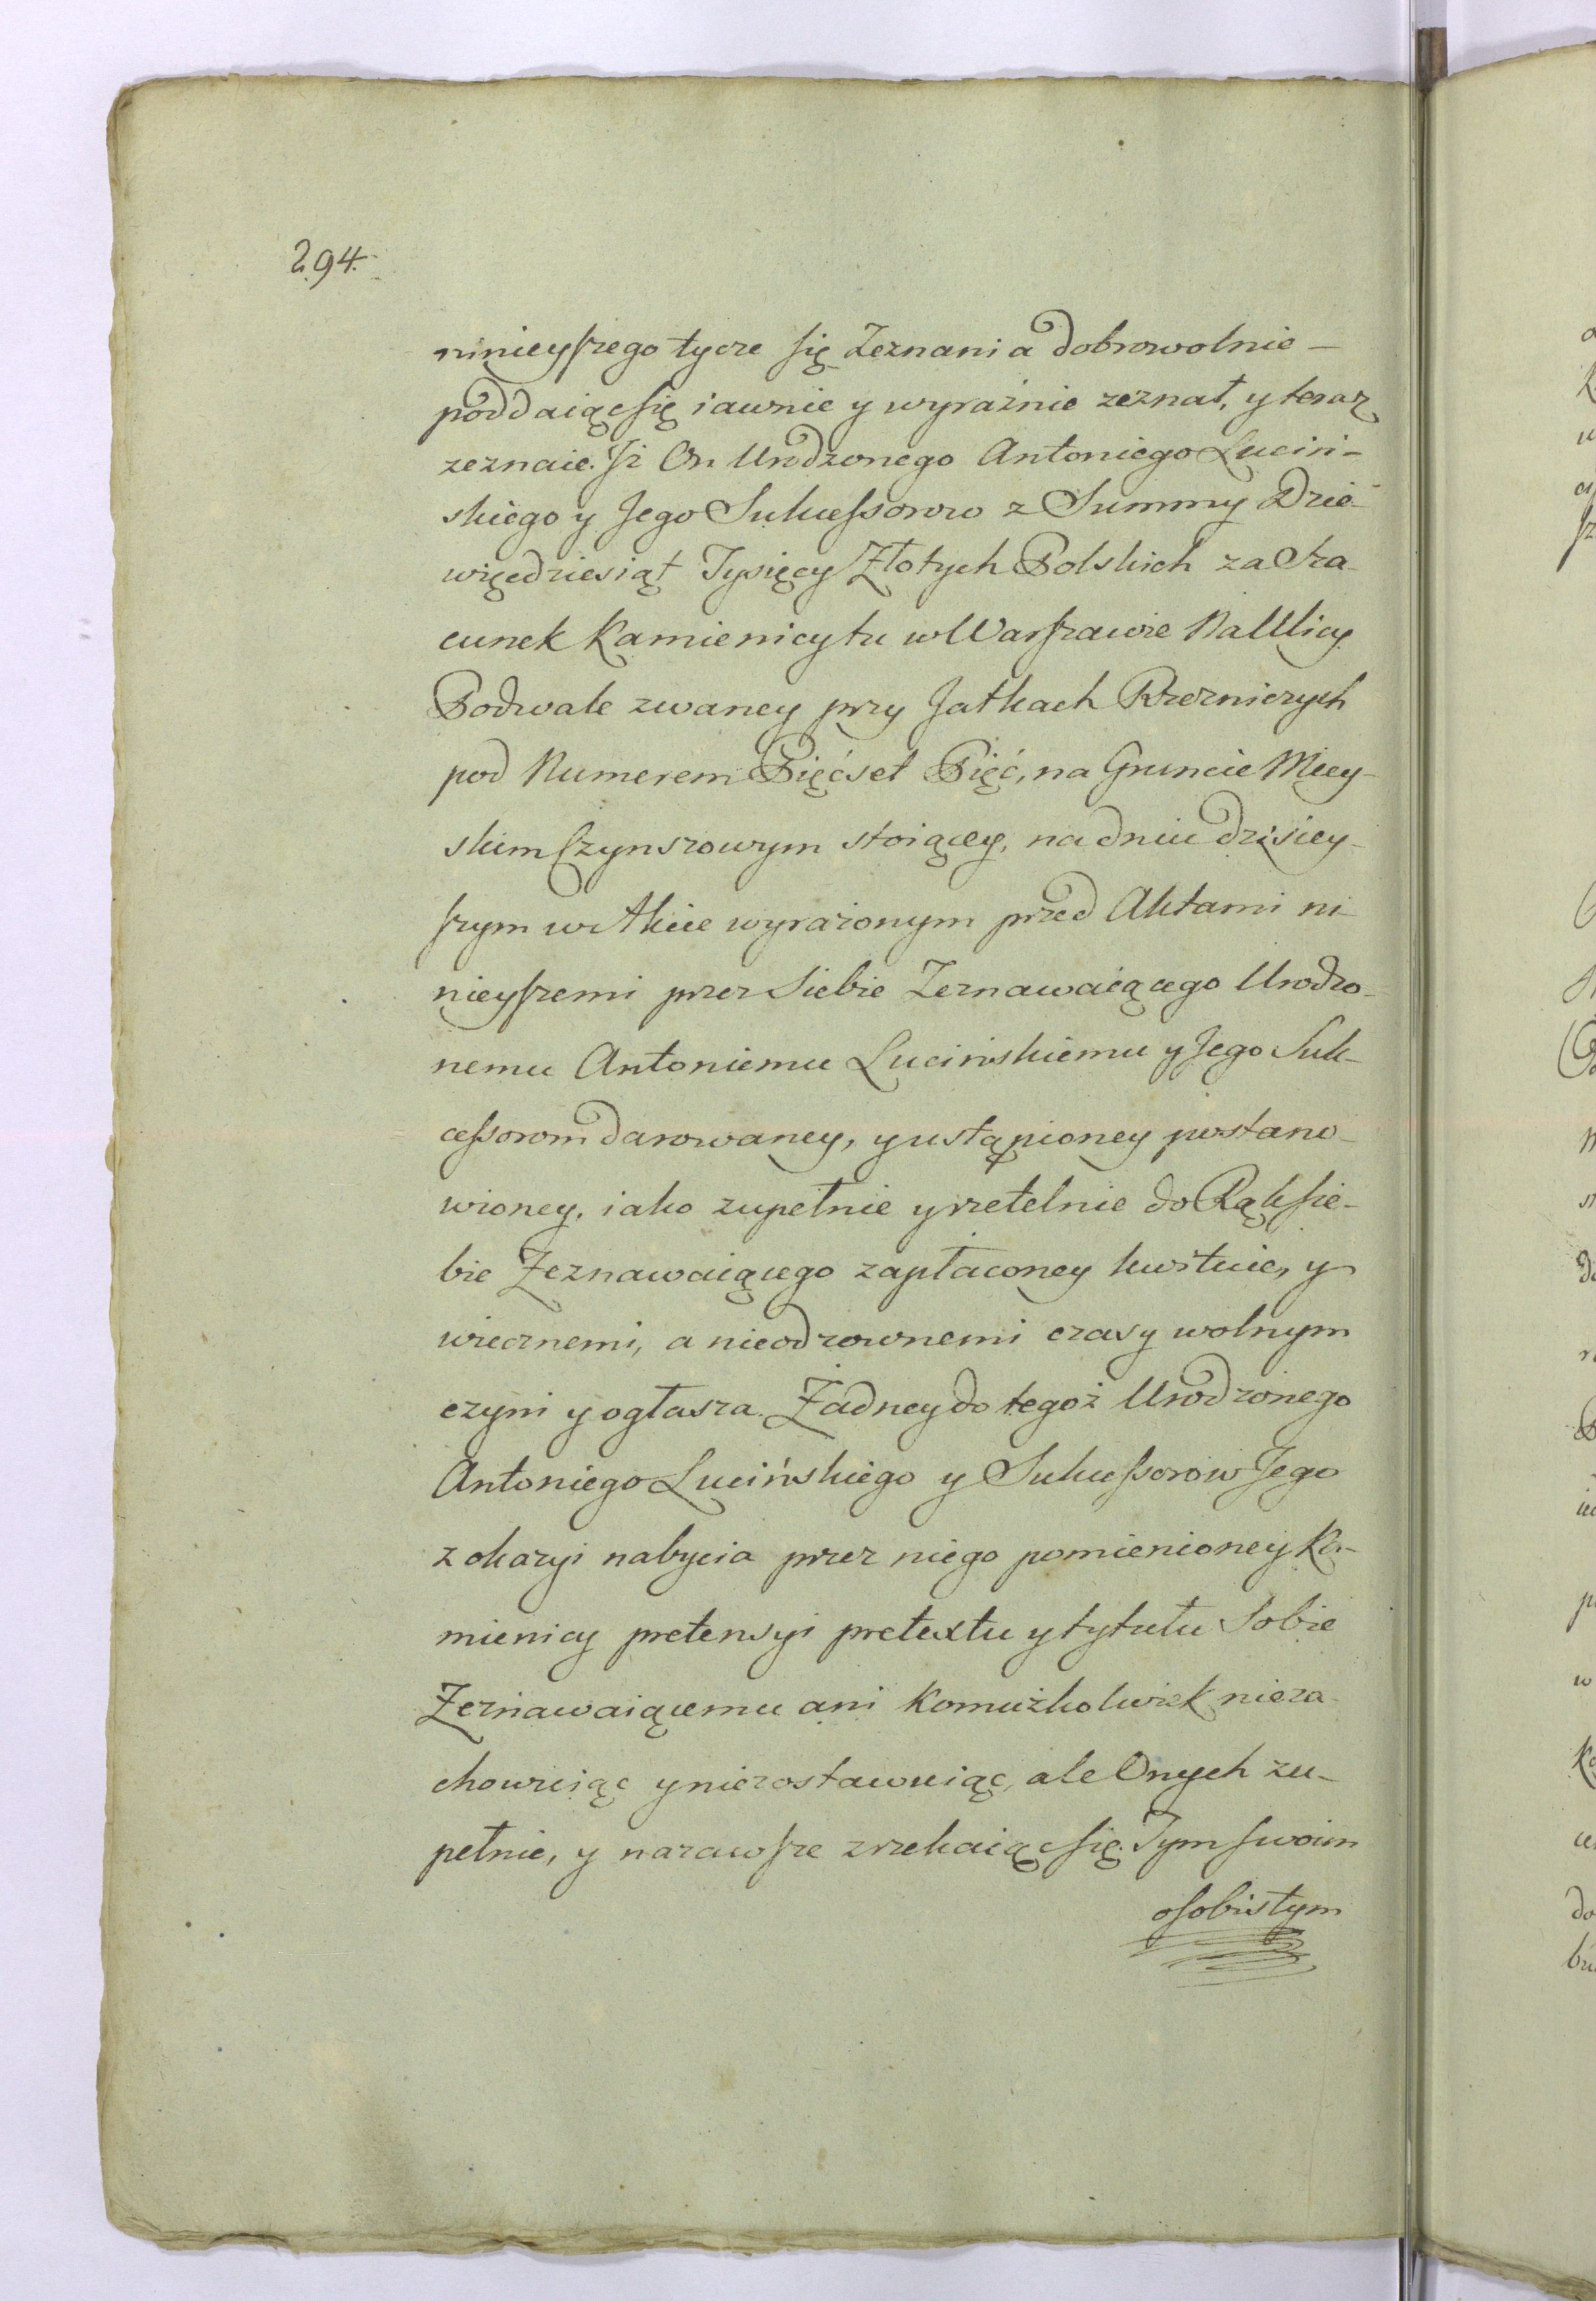 294.
ninieyszego tycze się Zeznania dobrowolnie –
poddaiąc się iawnie y wyraźnie zeznał, y teraz
zeznaie. Jż On Urodzonego Antoniego Luciń-
skiego y Jego Sukcessorow z Summy Dzie-
więcdziesiąt Tysięcy Złotych Polskich za Sza-
cunek Kamienicy tu w Warszawie Na Ulicy
Podwale zwaney przy Jatkach Rzezniczych
pod Numerem Pięćset Pięć, na Gruncie Miey-
skim Czynszowym stoiącey, na dniu dzisiey-
szym w Akcie wyrażonym przed Aktami ni-
nieyszemi przez Siebie Zeznawaiącego Urodzo-
nemu Antoniemu Lucińskiemu y Jego Suk-
cessorom darowaney, y ustąpioney postano-
wioney, iako zupełnie y rzetelnie do Rąk sie-
bie Zeznawaiącego zapłaconey kwituie, y
wiecznemi, a nieodzownemi czasy wolnym
czyni y ogłasza. Żadney do tegoż Urodzonego
Antoniego Lucińskiego y Sukcessorow Jego
z okazyi nabycia przez niego pomienioney Ka-
mienicy pretensyi pretextu y tytułu Sobie
Zeznawaiącemu ani Komużkolwiek nieza-
chowuiąc y niezostawuiąc, ale Onych zu-
pełnie, y nazawsze zrzekaiąc się. Tym swoim
osobistym